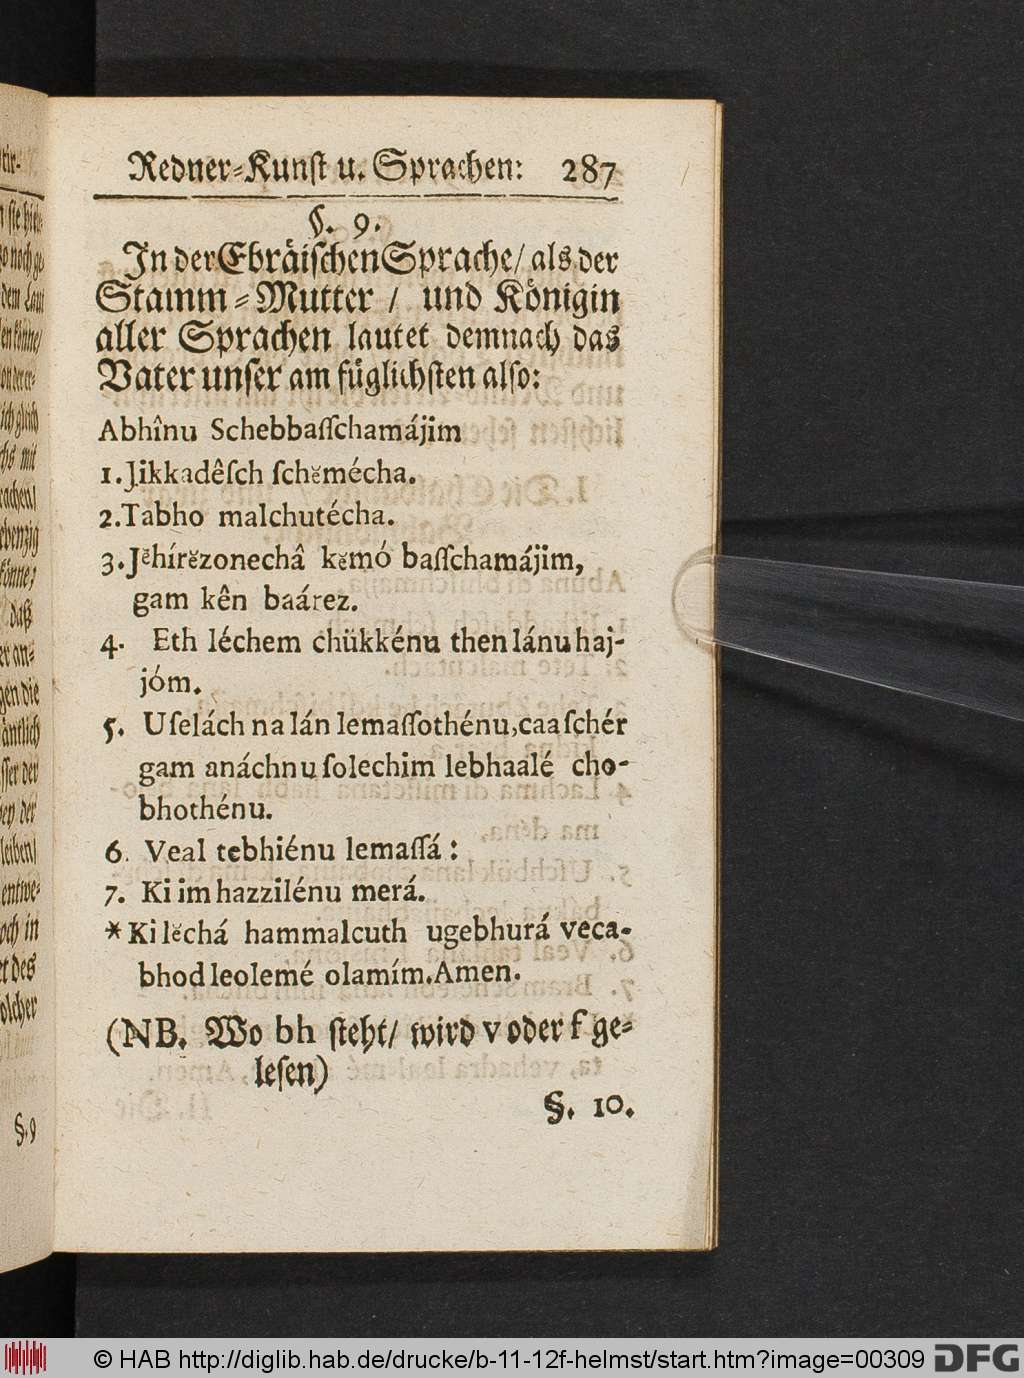 Redner-Kunst u. Sprachen: 287
§. 9.
In der Ebräischen Sprache/ als der
Stamm-Mutter / und Königin
aller Sprachen lautet demnach das
Vater unser am füglichsten also:
Abhînu Schebbaſſchamájim
1. Jikkadêſch ſchĕmécha.
2. Tabho malchutécha.
3. Jĕhírĕzonechâ kĕmó baſſchamájim,
gam kên baárez.
4. Eth léchem chükkénu then lánu haj-
jóm.
5. Uſelách na lán lemaſſothénu, caaſchér
gam anáchnu ſolechim lebhaalé cho-
bhothénu.
6. Veal tebhiénu lemaſſá:
7. Ki im hazzilénu merá.
* Ki lĕchá hammalcuth ugebhurá veca-
bhod leolemé olamím. Amen.
(NB. Wo bh steht/ wird v oder f ge-
lesen)
§. 10.
§. 9
© HAB http://diglib.hab.de/drucke/b-11-12f-helmst/start.htm?image=00309 DFG